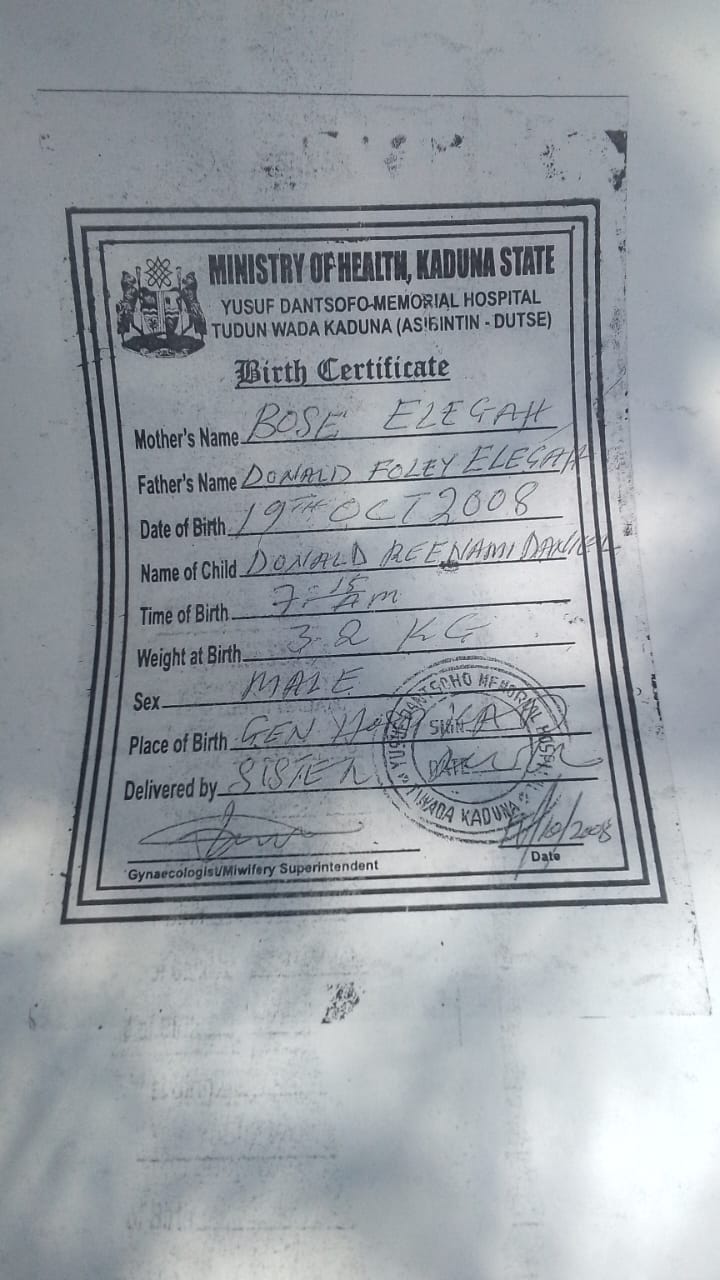 MINISTRY OF HEALTH, KADUNA STATE
YUSUF DANTSOFO-MEMORIAL HOSPITAL
TUDUN WADA KADUNA (ASIBINTIN - DUTSE)
Birth Certificate
Mother's Name BOSE ELEGAH
Father's Name DONALD FOLEY ELEGAH
Date of Birth 19TH OCT 2008
Name of Child DONALD REENAMI DANIEL
Time of Birth 7:15 am
Weight at Birth 3.2 KG
Sex MALE
Place of Birth GEN
Delivered by SISTER
YUSUF DANTSOHO MEMORIAL HOSPITAL
SIGN
DATE
T/WADA KADUNA
/10/2008
Gynaecologist/Miwifery Superintendent
Date